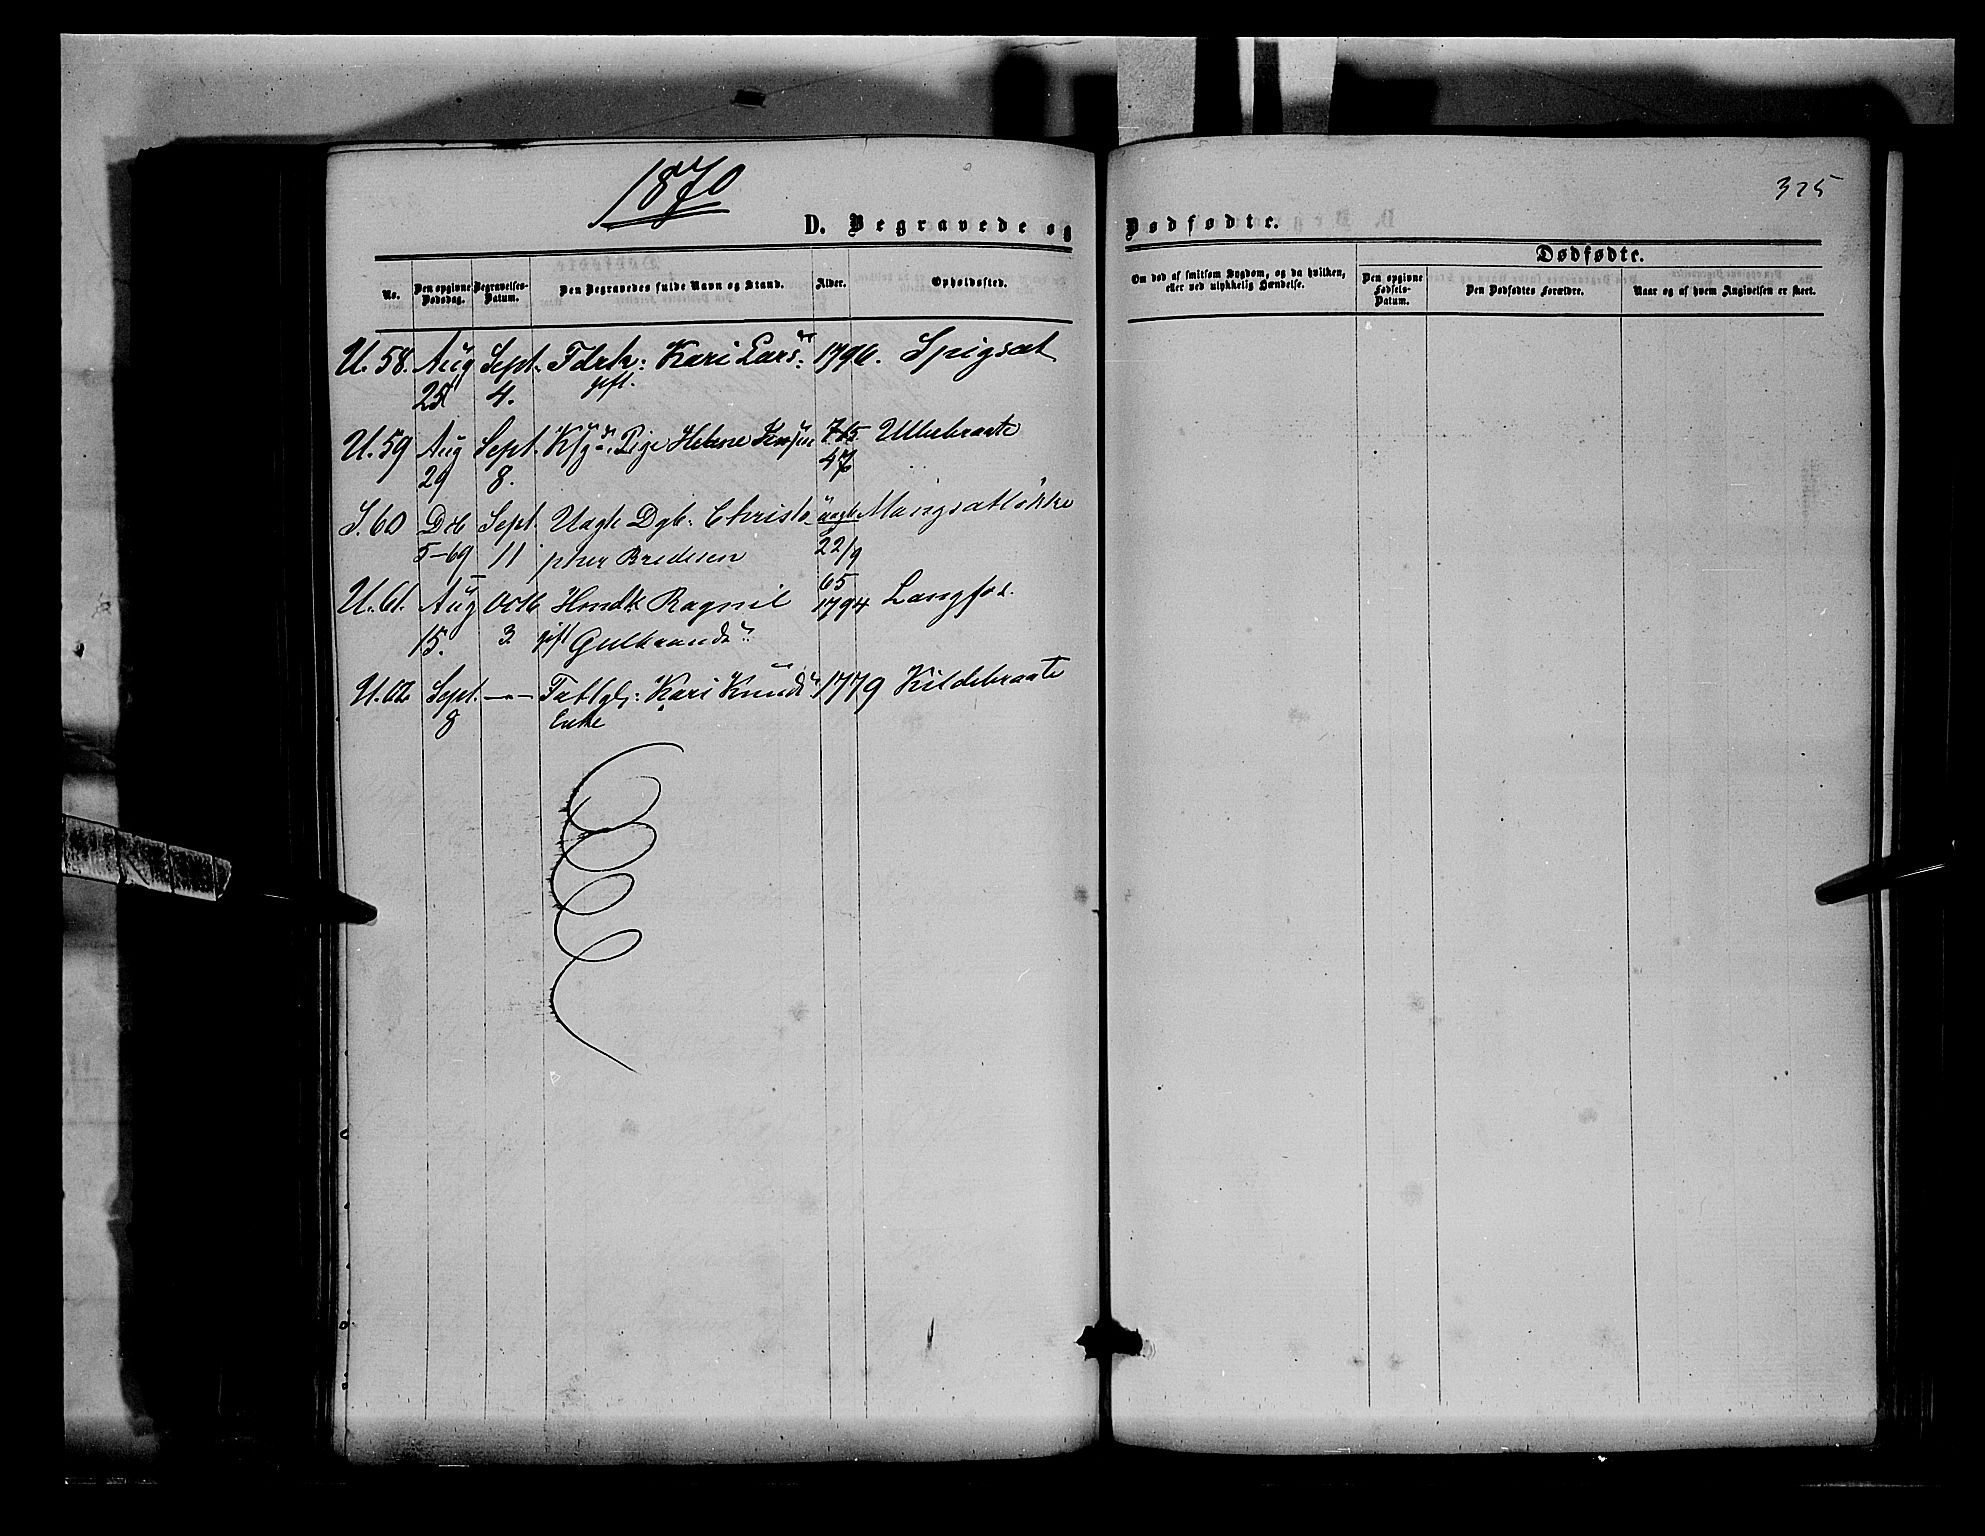 1870
325
D. Begravede og Dødfødte.
Dødfødte.
No.
Den opgivne Dødsdag.
Begravelses-Datum.
Den Begravedes fulde Navn og Stand.
Alder.
Opholdssted.
Om død af smitsom Sygdom, og da hvilken, eller ved ulykkelig Hændelse.
Den opgivne Fødsels-Datum.
Den Dødfødtes Forældre.
Naar og af hvem Angivelsen er skeet.
U. 58. Aug Sept. Fdrk: Kari Larsd: 1796. Spigsæt
28 4. gift.
U. 59 Aug Sept. Pige Helene Ullebraate
29 8. 47
S. 60 Dcb Sept. Uægte Dgb: Christo uægte Mangsætløkke
5-69 11 pher Bredesen 22/9
65
U. 61. Aug Octb Ragnil 1794 Langfos.
15. 3. gift Gulbrandsd:
U. 62 Sept. -"- Fattgl: Kari Knudsd: 1779 Kildebraate
8 Enke